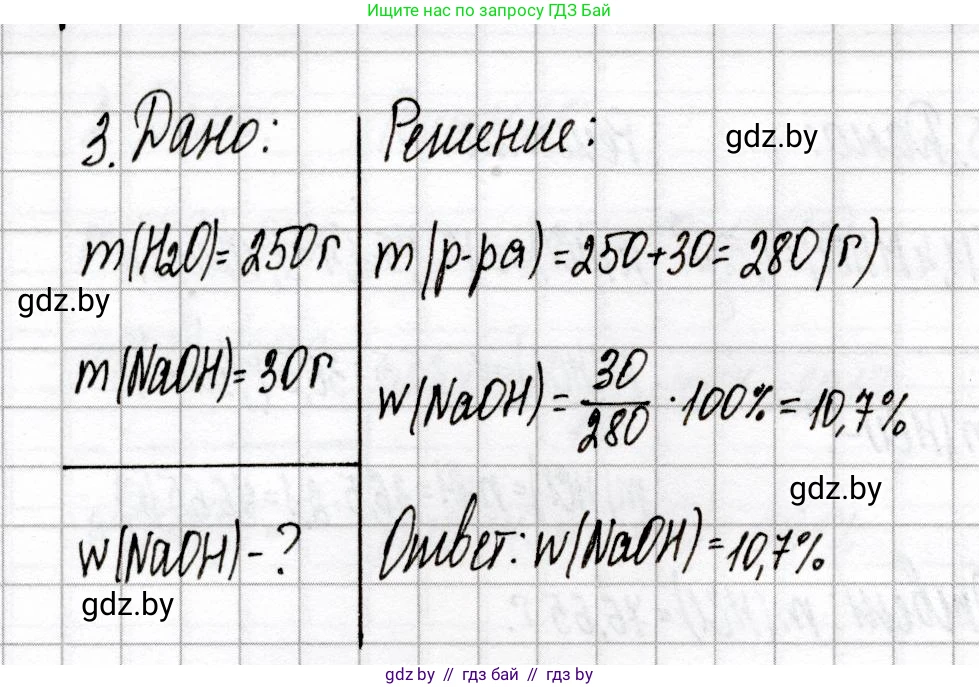 Ищите нас по запросу ГДЗ Бай
3. Дано:
Решение:
gdz.by
m(H2O)=250г
m(р-ра)=250+30=280(г)
gdz.by
m(NaOH)=30г
w(NaOH)=30/280·100%=10,7%
gdz.by
w(NaOH)-?
Ответ: w(NaOH)=10,7%
gdz.by
gdz.by // гдз бай // gdz.by